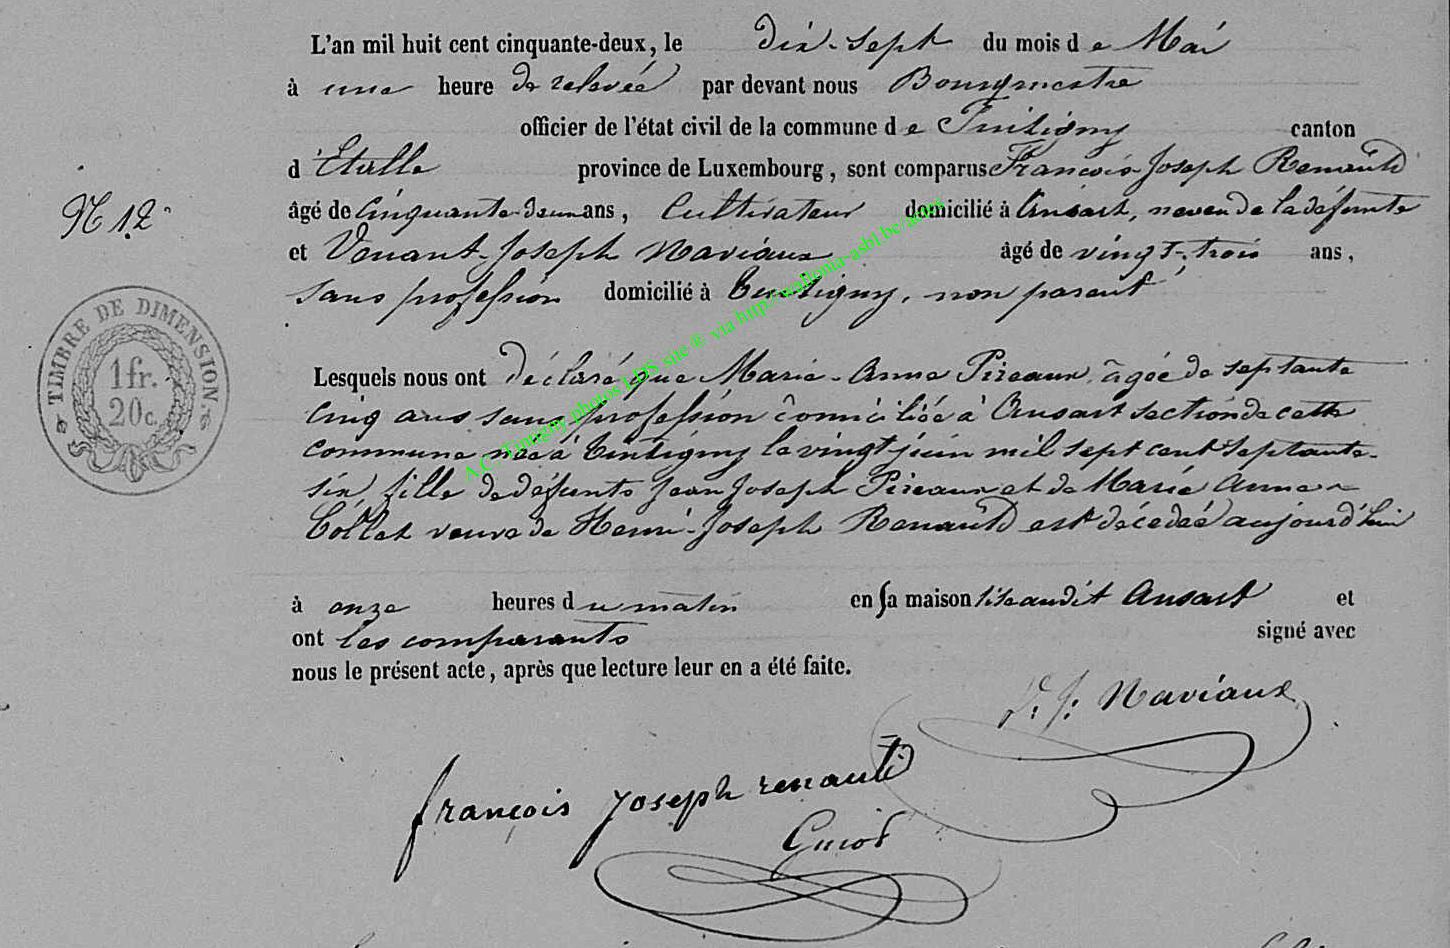 L'an mil huit cent cinquante-deux, le dix-sept du mois de Mai
à une heure de relevée par devant nous Bourgmestre
officier de l'état civil de la commune de Tintigny canton
d'Etalle province de Luxembourg, sont comparus François-Joseph Renauld
N° 12
âgé de cinquante-deux ans, Cultivateur domicilié à Ansart, neveu de la défunte
et Venant-Joseph Naviaux âgé de vingt-trois ans,
sans profession domicilié à Tintigny, non parent
TIMBRE DE DIMENSION
1 fr.
20 c.
Lesquels nous ont déclaré que Marie-Anne Pireaux, âgée de septante
cinq ans sans profession domiciliée à Ansart section de cette
commune née à Tintigny le vingt juin mil sept cent septante-
six, fille de défunts Jean Joseph Pireaux et de Marie Anne
Collet veuve de Henri-Joseph Renauld est décedeé aujourd'hui
à onze heures du matin en sa maison sise audit Ansart et
ont les comparants signé avec
nous le présent acte, après que lecture leur en a été faite.
V. J. Naviaux
françois joseph renauld
Guiot
A.C. Tintigny photos LDS sue ® via http://wallonia-asbl.be/actes